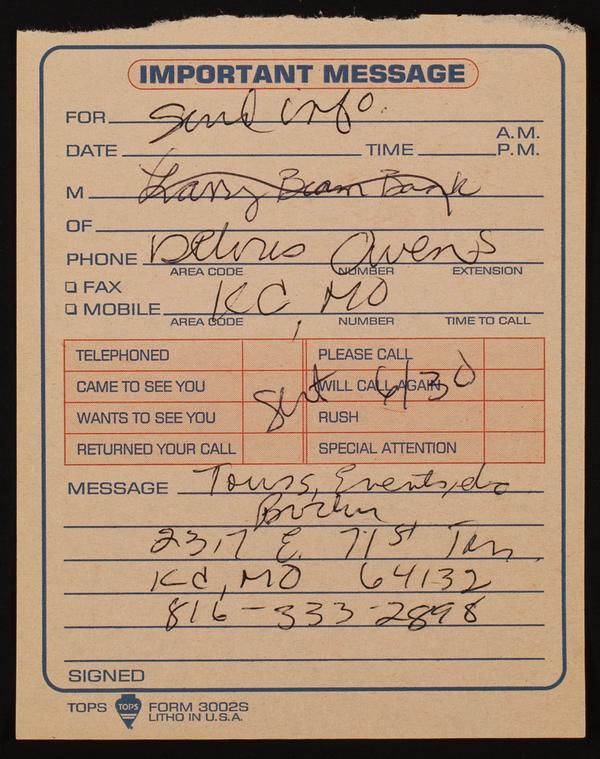 IMPORTANT MESSAGE
FOR Send info.
A.M.
DATE TIME P.M.
M Larry Beam Bank
OF
PHONE Deloris Owens
AREA CODE NUMBER EXTENSION
FAX
MOBILE KC, MO
AREA CODE NUMBER TIME TO CALL
TELEPHONED PLEASE CALL
CAME TO SEE YOU WILL CALL AGAIN
Sent 6/30
WANTS TO SEE YOU RUSH
RETURNED YOUR CALL SPECIAL ATTENTION
MESSAGE Tours, Events, etc
2317 E. 71st Terr.
KC, MO 64132
816-333-2898
SIGNED
TOPS TOPS FORM 3002S
LITHO IN U.S.A.